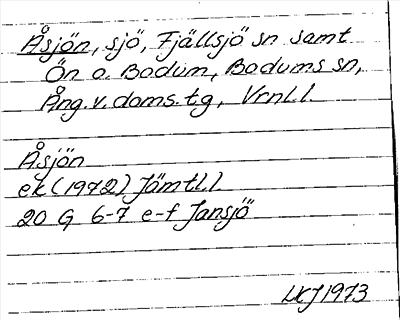 Åsjön, sjö, Fjällsjö sn samt
Ön o. Bodum, Bodums sn,
Ång. v. doms. tg, Vrnl. l.
Åsjön
ek (1972) Jämtl. l
20 G 6-7 e-f Jansjö
LKJ 1973